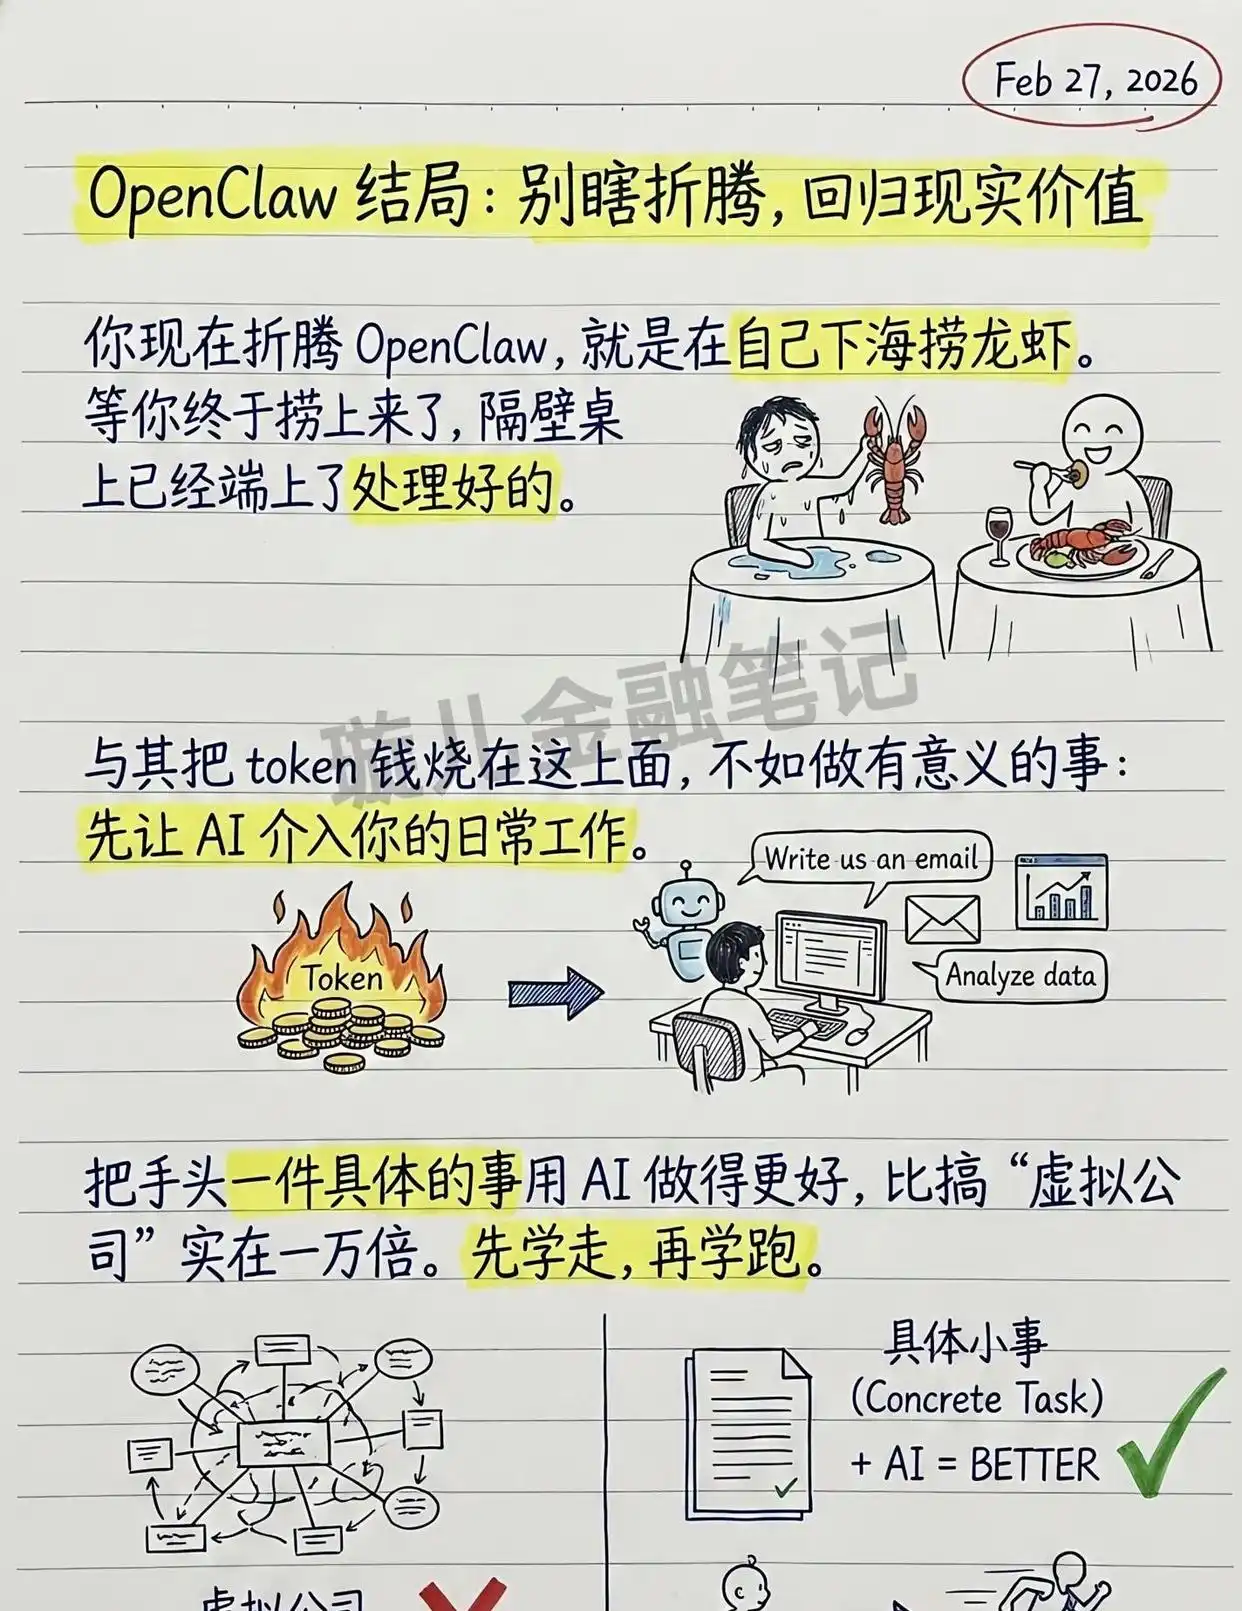 Feb 27, 2026
OpenClaw 结局：别瞎折腾，回归现实价值
你现在折腾 OpenClaw，就是在自己下海捞龙虾。
等你终于捞上来了，隔壁桌
上已经端上了处理好的。
璇儿金融笔记
与其把 token 钱烧在这上面，不如做有意义的事：
先让 AI 介入你的日常工作。
Write us an email
Token
Analyze data
把手头一件具体的事用 AI 做得更好，比搞“虚拟公
司”实在一万倍。先学走，再学跑。
具体小事
(Concrete Task)
+ AI = BETTER
虚拟公司